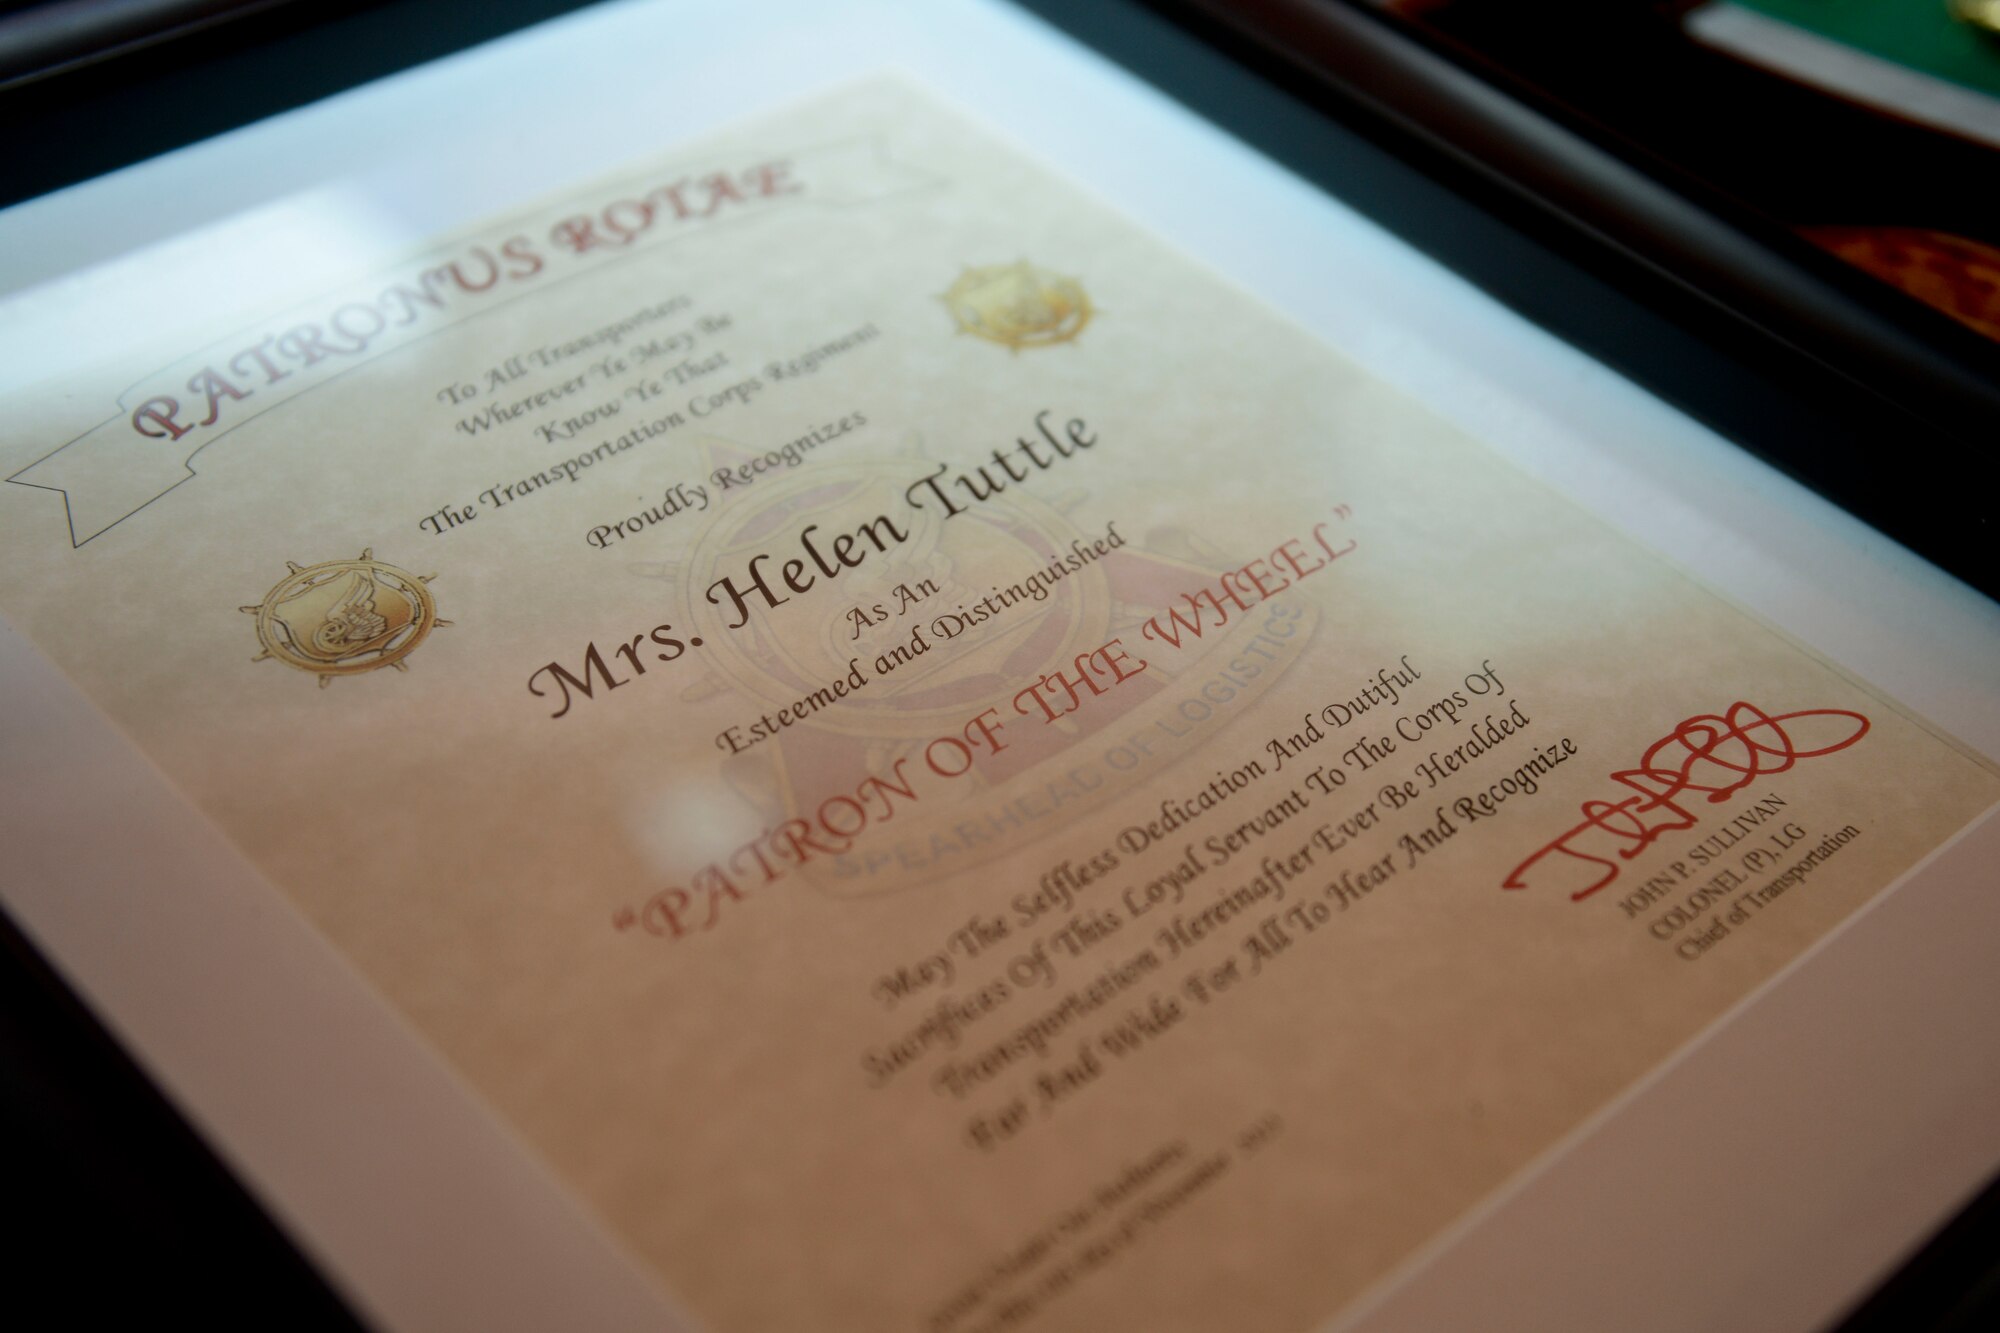 PATRONUS ROTAE
To All Transporters
Wherever Ye May Be
Know Ye That
The Transportation Corps Regiment
Proudly Recognizes
Mrs. Helen Tuttle
As An
Esteemed and Distinguished
“PATRON OF THE WHEEL”
SPEARHEAD OF LOGISTICS
May The Selfless Dedication And Dutiful
Sacrifices Of This Loyal Servant To The Corps Of
Transportation Hereinafter Ever Be Heralded
Far And Wide For All To Hear And Recognize
JOHN P. SULLIVAN
COLONEL (P), LG
Chief of Transportation